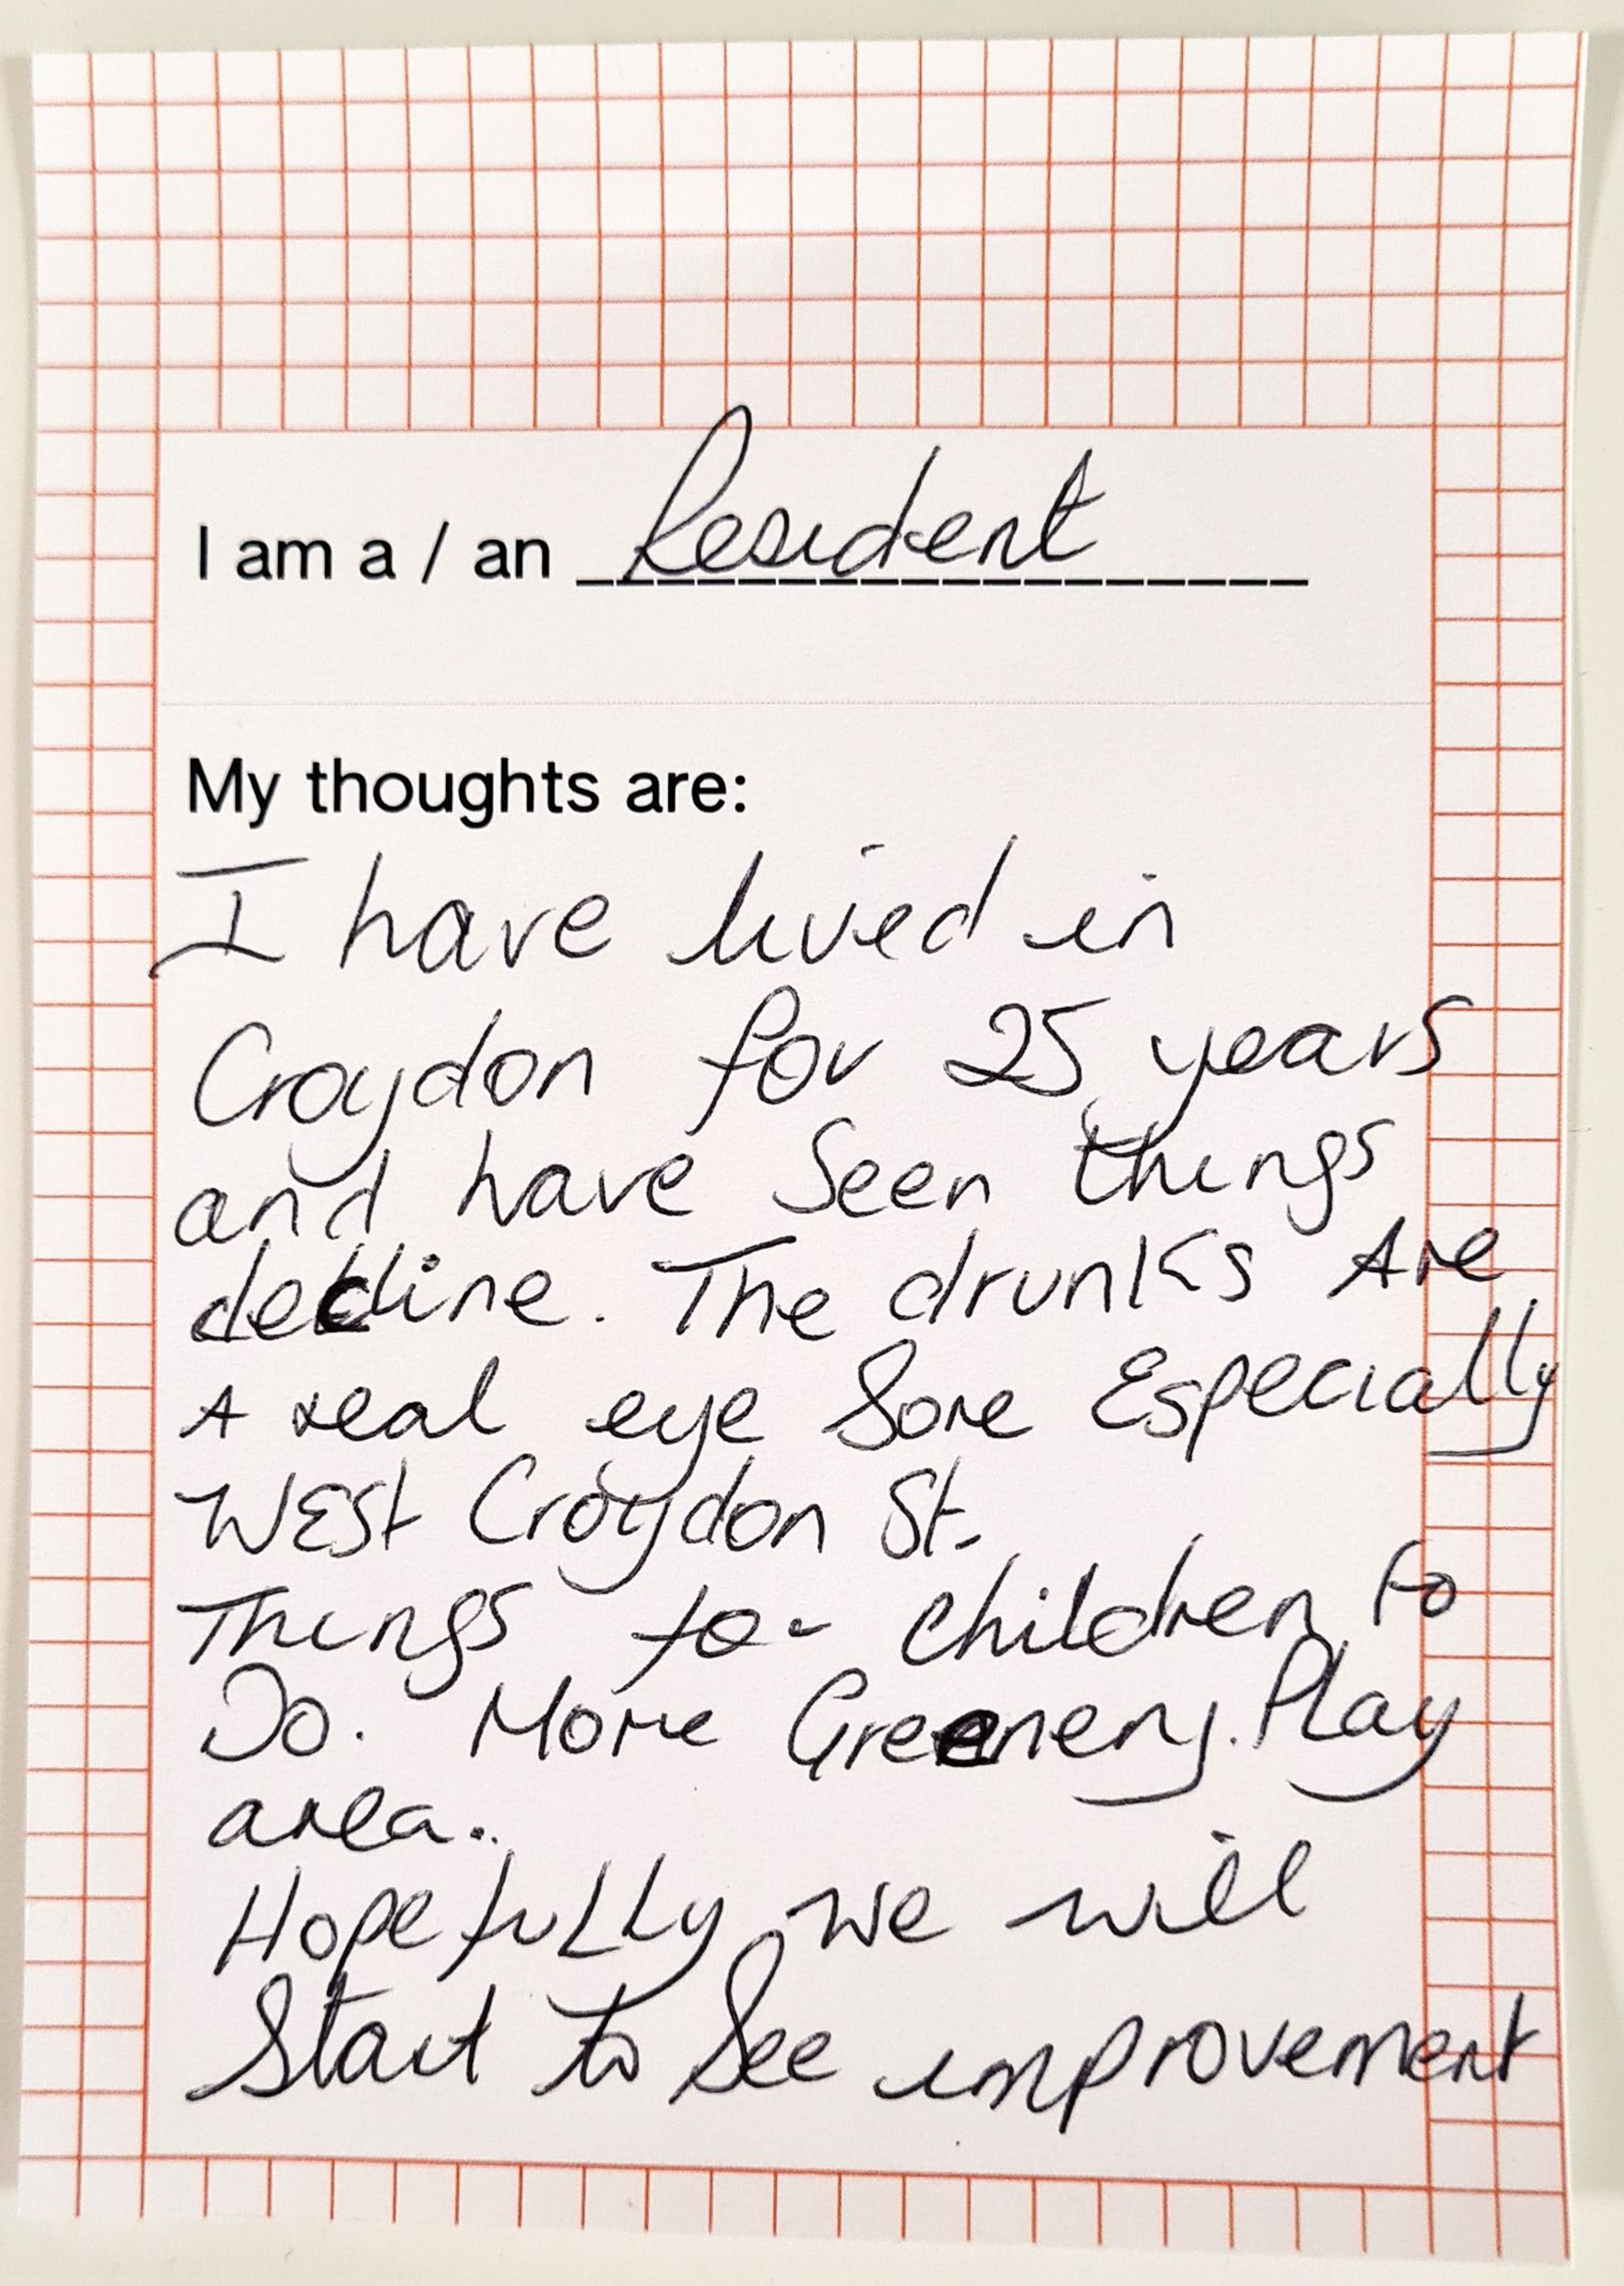 I am a / an Resident
My thoughts are:
I have lived in
Croydon for 25 years
and have Seen things
decline. The drunks Are
A real eye Sore Especially
WEST Croydon St.
Things for children to
Do. More Greenery. Play
area..
HopefuLLy we will
Start to See improvement